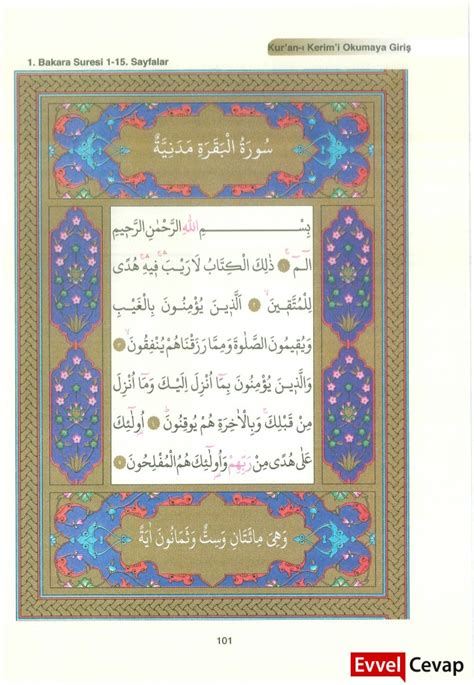 Kur'an-ı Kerim'i Okumaya Giriş
1. Bakara Suresi 1-15. Sayfalar
سُورَةُ الْبَقَرَةِ مَدَنِيَّةٌ
بِسْمِ اللّٰهِ الرَّحْمٰنِ الرَّحِيمِ
الٓمٓ ۞ ذٰلِكَ الْكِتَابُ لَا رَيْبَ ۛ فِيهِ ۛ هُدًى
لِلْمُتَّقِينَ ۞ اَلَّذِينَ يُؤْمِنُونَ بِالْغَيْبِ
وَيُقِيمُونَ الصَّلٰوةَ وَمِمَّا رَزَقْنَاهُمْ يُنْفِقُونَ ۞
وَالَّذِينَ يُؤْمِنُونَ بِمَٓا اُنْزِلَ اِلَيْكَ وَمَٓا اُنْزِلَ
مِنْ قَبْلِكَ وَبِالْاٰخِرَةِ هُمْ يُوقِنُونَ ۞ اُو۬لٰٓئِكَ
عَلٰى هُدًى مِنْ رَبِّهِمْ وَاُو۬لٰٓئِكَ هُمُ الْمُفْلِحُونَ ۞
وَهِيَ مِائَتَانِ وَسِتٌّ وَثَمَانُونَ اٰيَةً
101
Evvel Cevap